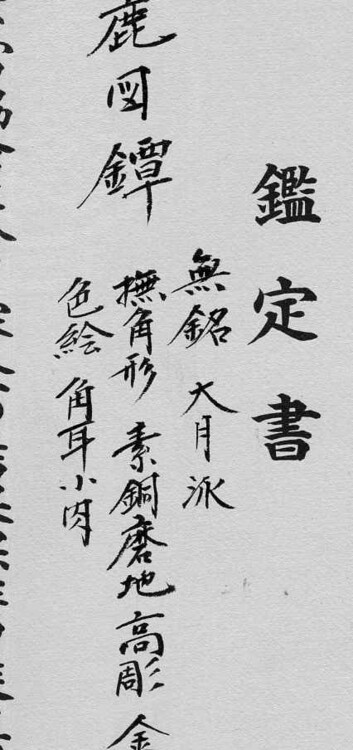 鑑定書
無銘 大月派
撫角形 素銅磨地 高彫 金
色絵 角耳小肉
鹿図鐔